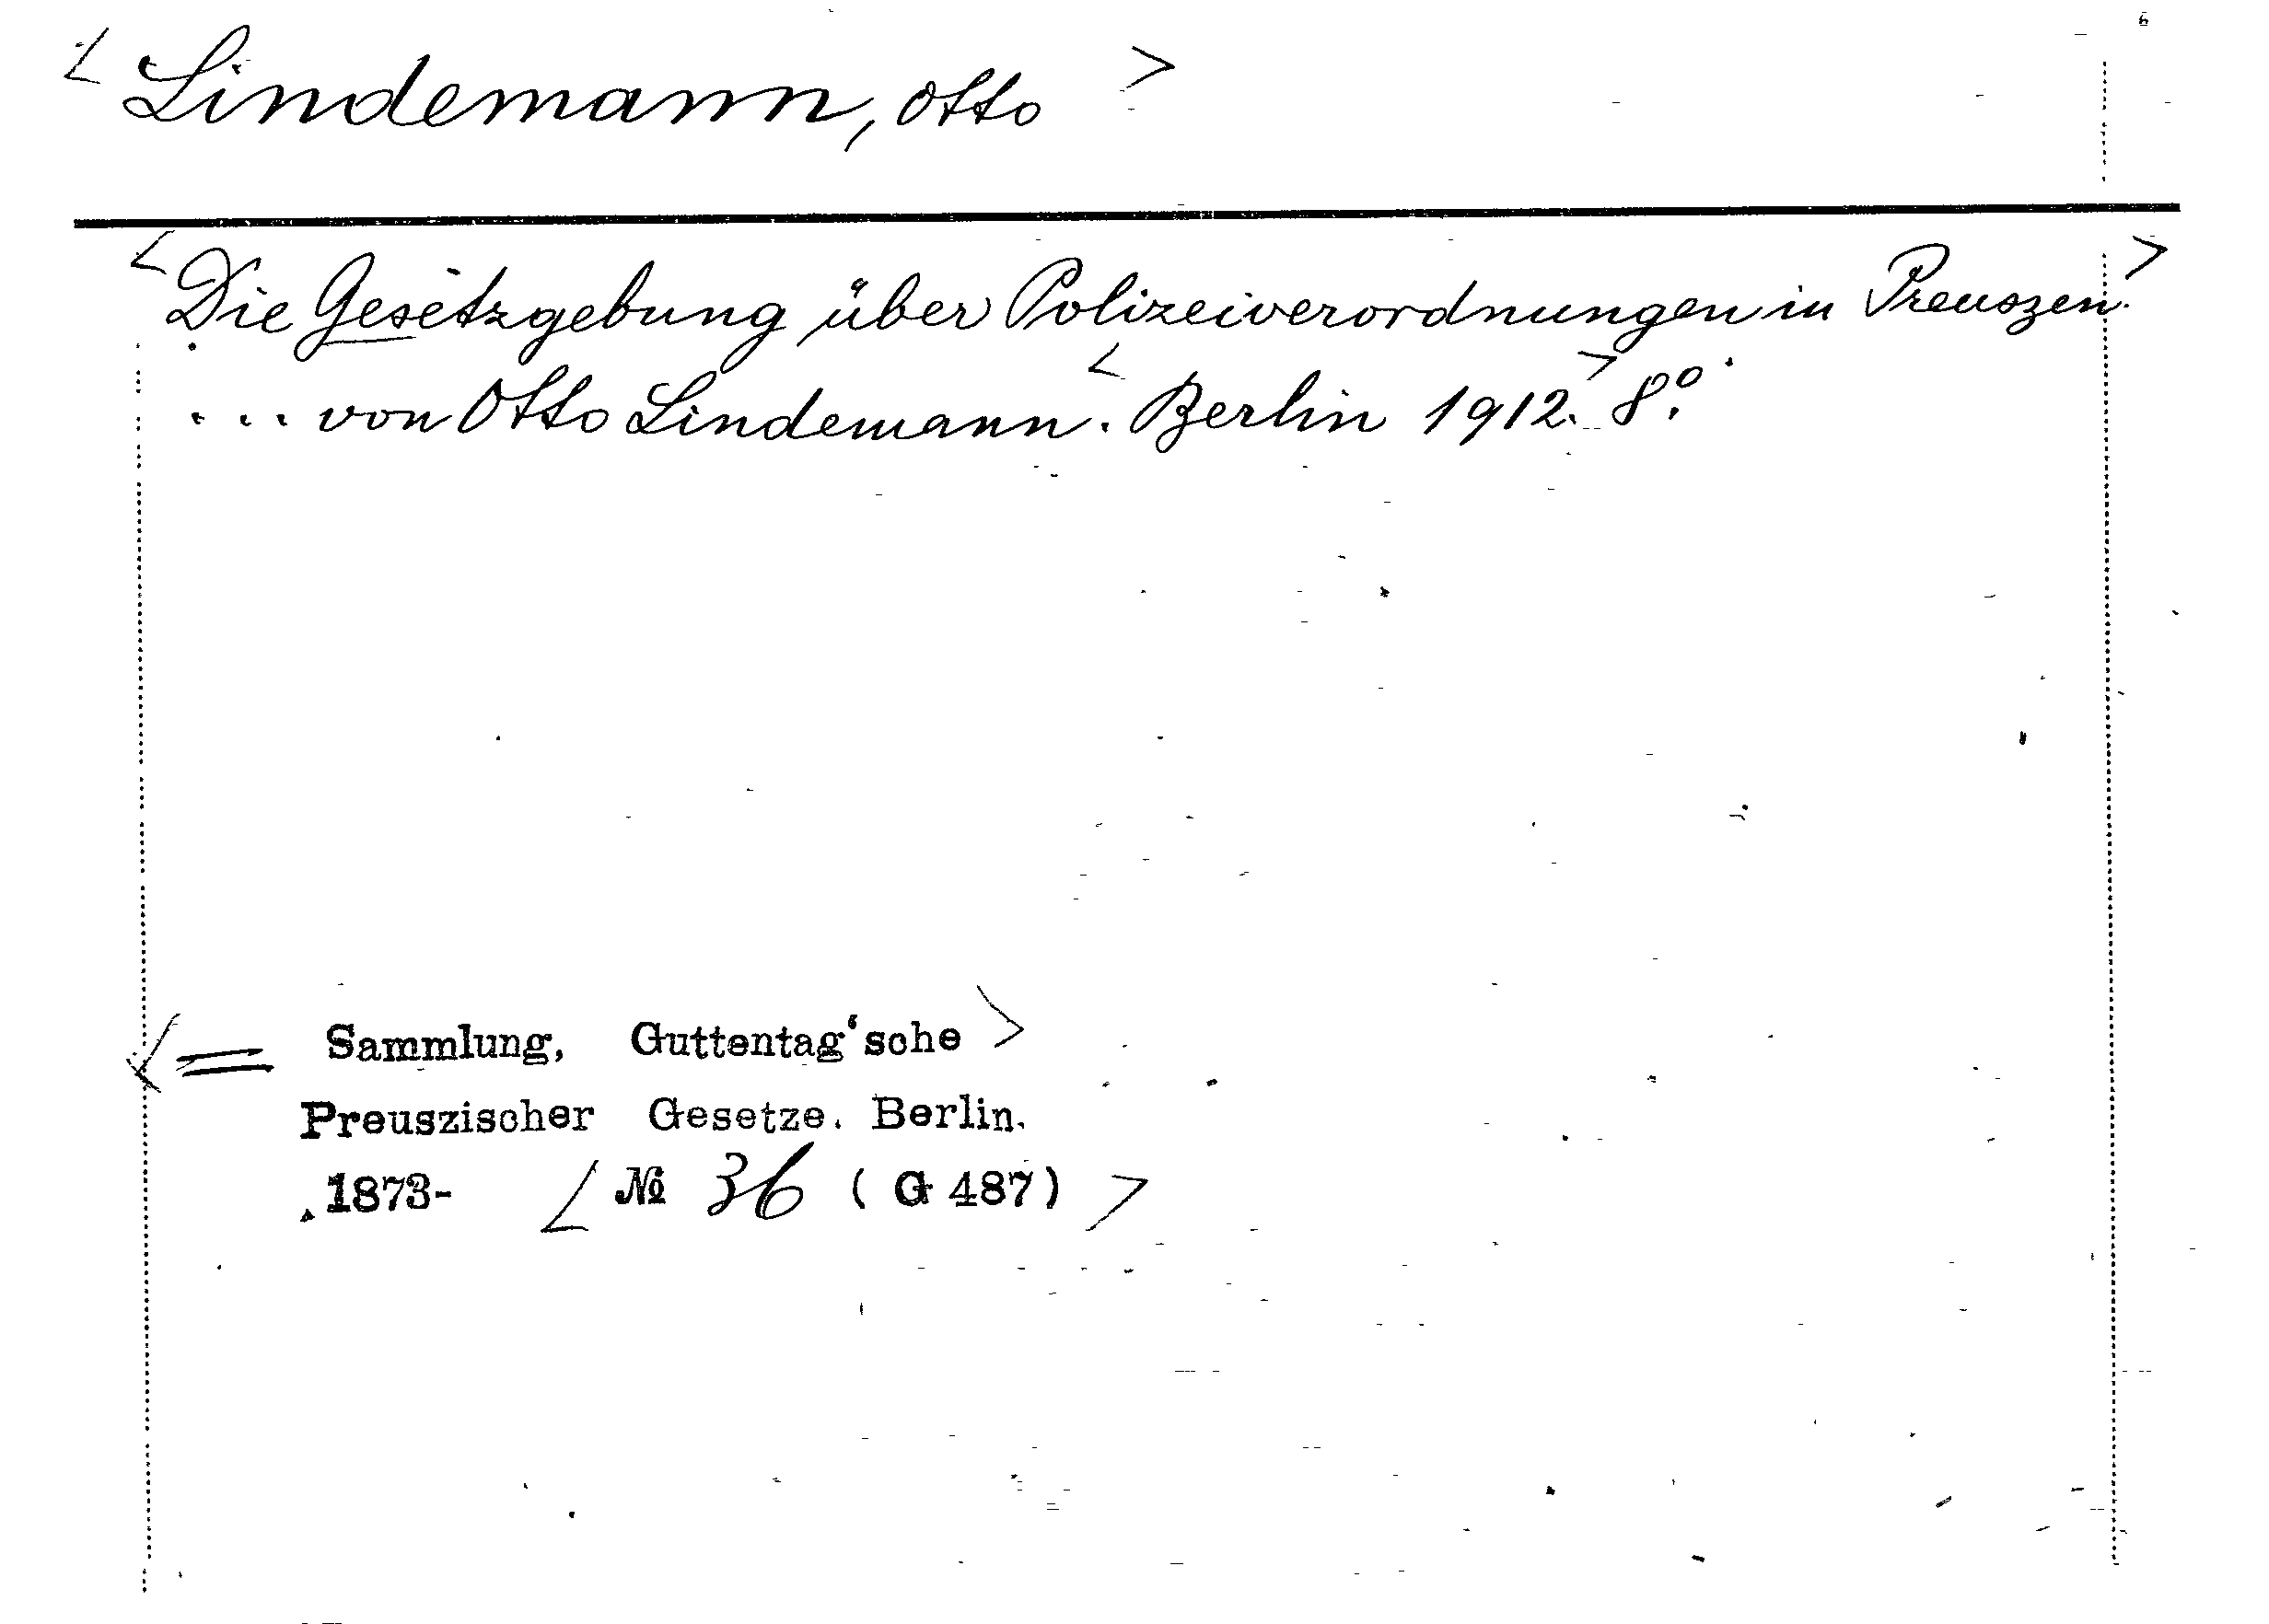 < Lindemann, Otto >
< Die Gesetzgebung über Polizeiverordnungen in Preuszen. >
... von Otto Lindemann. < Berlin 1912. > 8º.
< = Sammlung, Guttentag'sche >
Preuszischer Gesetze. Berlin.
1873- < № 36 (G 487) >